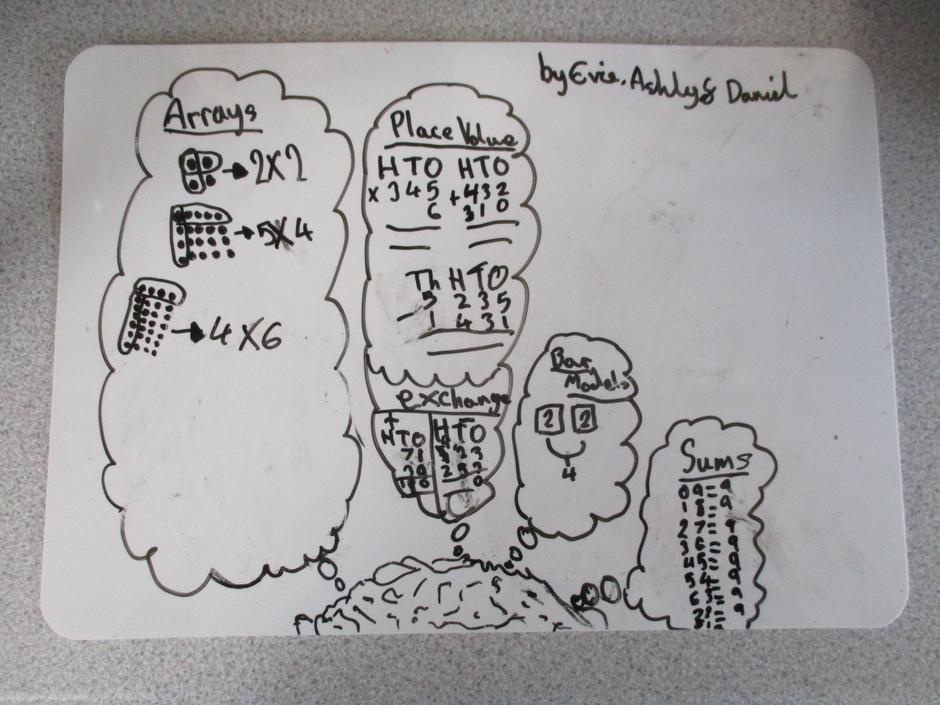 by Evie, Ashly & Daniel
Arrays
→ 2 X 2
→ 5 X 4
→ 4 X 6
Place Value
H T O H T O
x 3 4 5 + 4 3 2
6 3 1 0
Th H T O
5 2 3 5
- 1 4 3 1
exchange
+
H T O H T O
7 1
Bar
Models
2 2
4
Sums
0 9 = 9
1 8 = 9
2 7 = 9
3 6 = 9
4 5 = 9
5 4 = 9
6 3 = 9